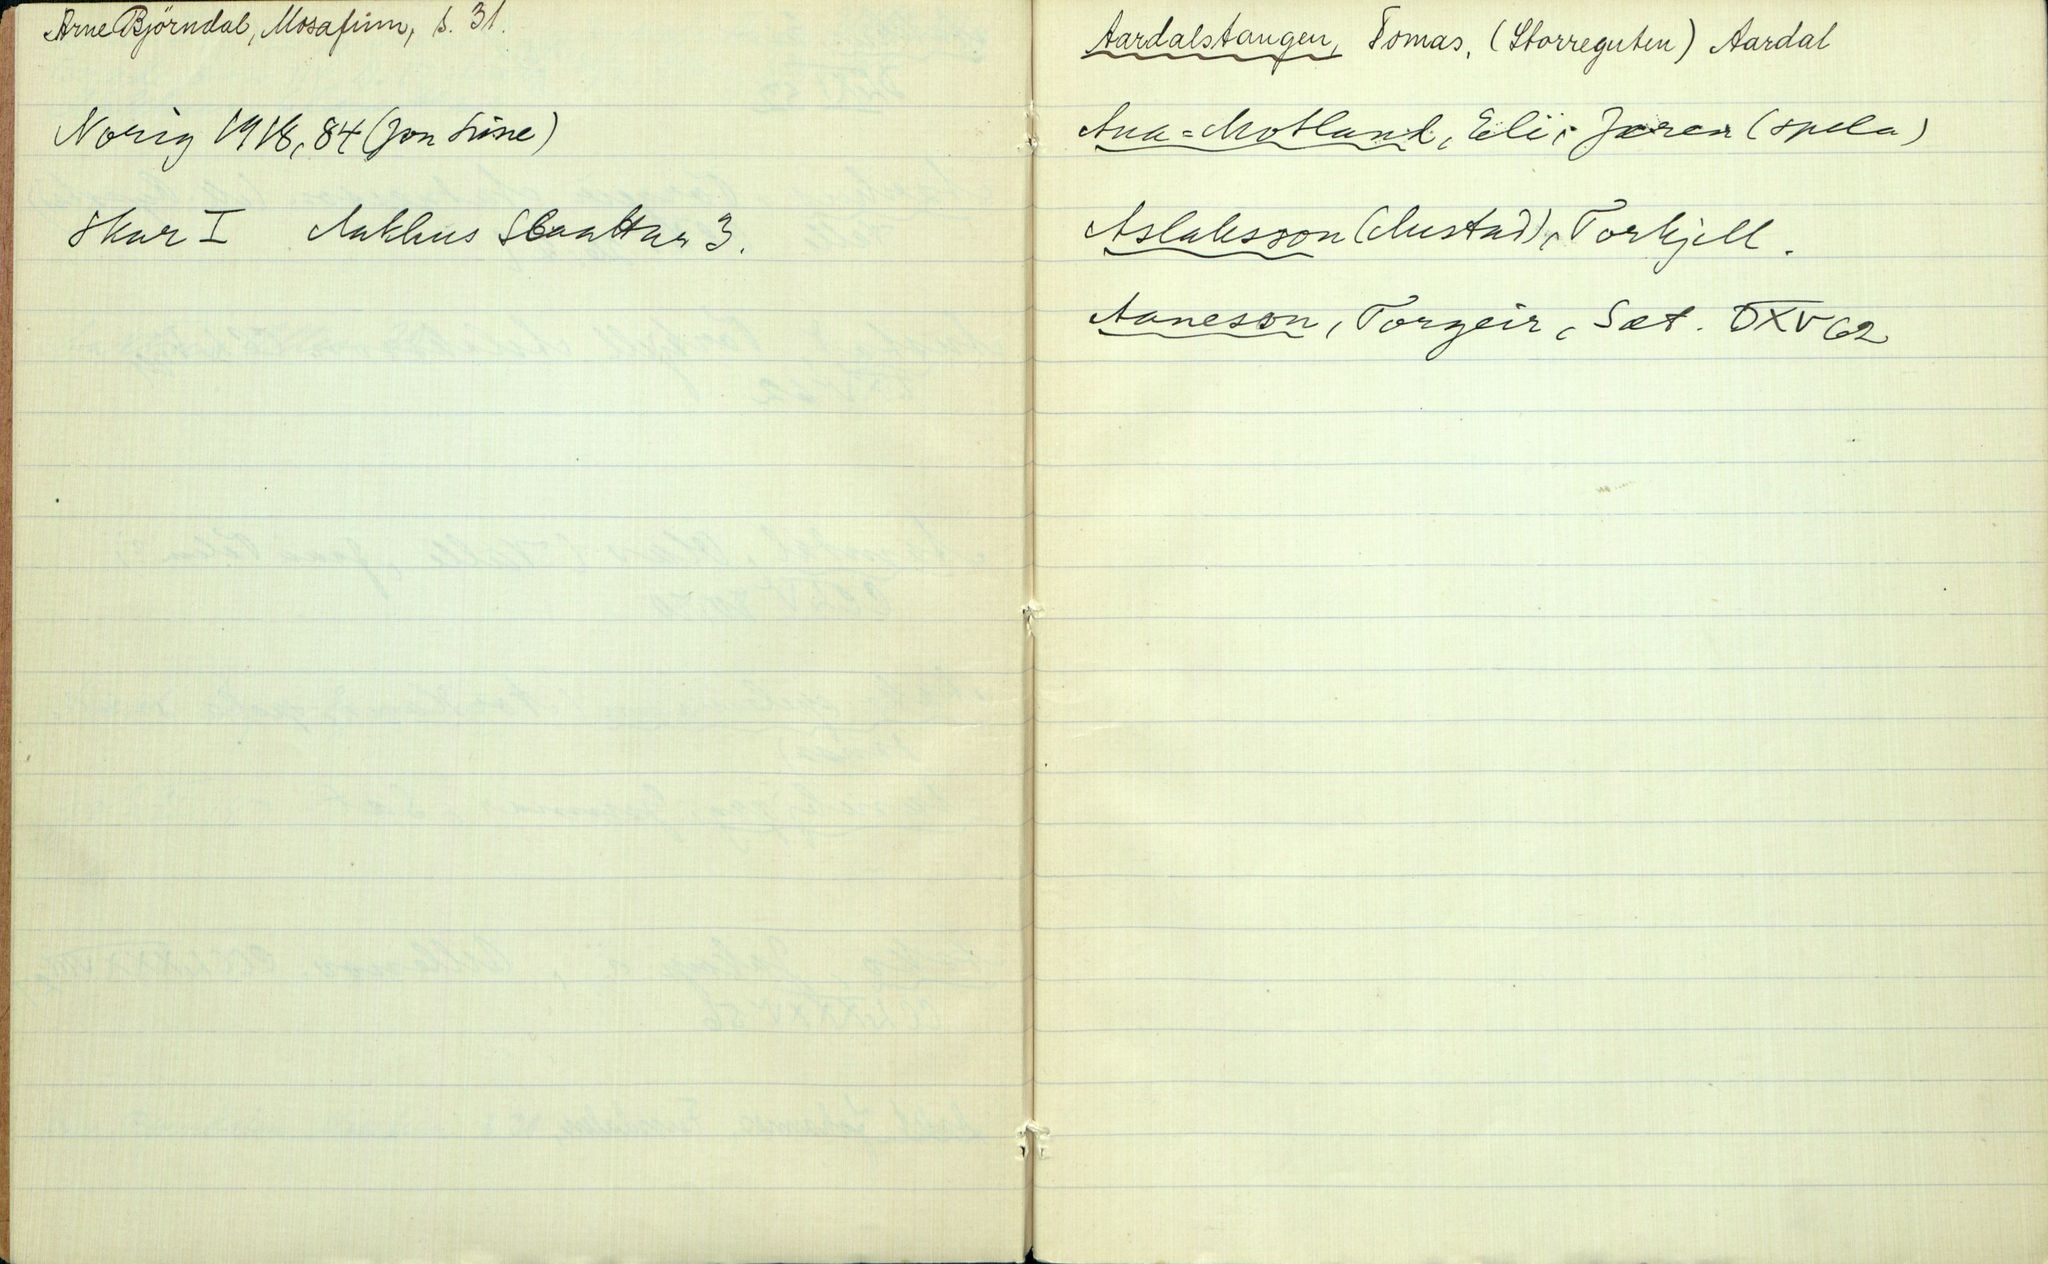 Arne Björndal, Mosafinn, s. 31.
Norig 1918, 84 (Jon Sine)
Skar I Aakhus Slaattar 3.
Aardalstangen, Tomas, (Storreguten) Aardal
Ana=Motland, Eli, Jæren (spela)
Aslaksson (Austad), Torkjell.
Aaneson, Torgeir, Sæt. DXV 62